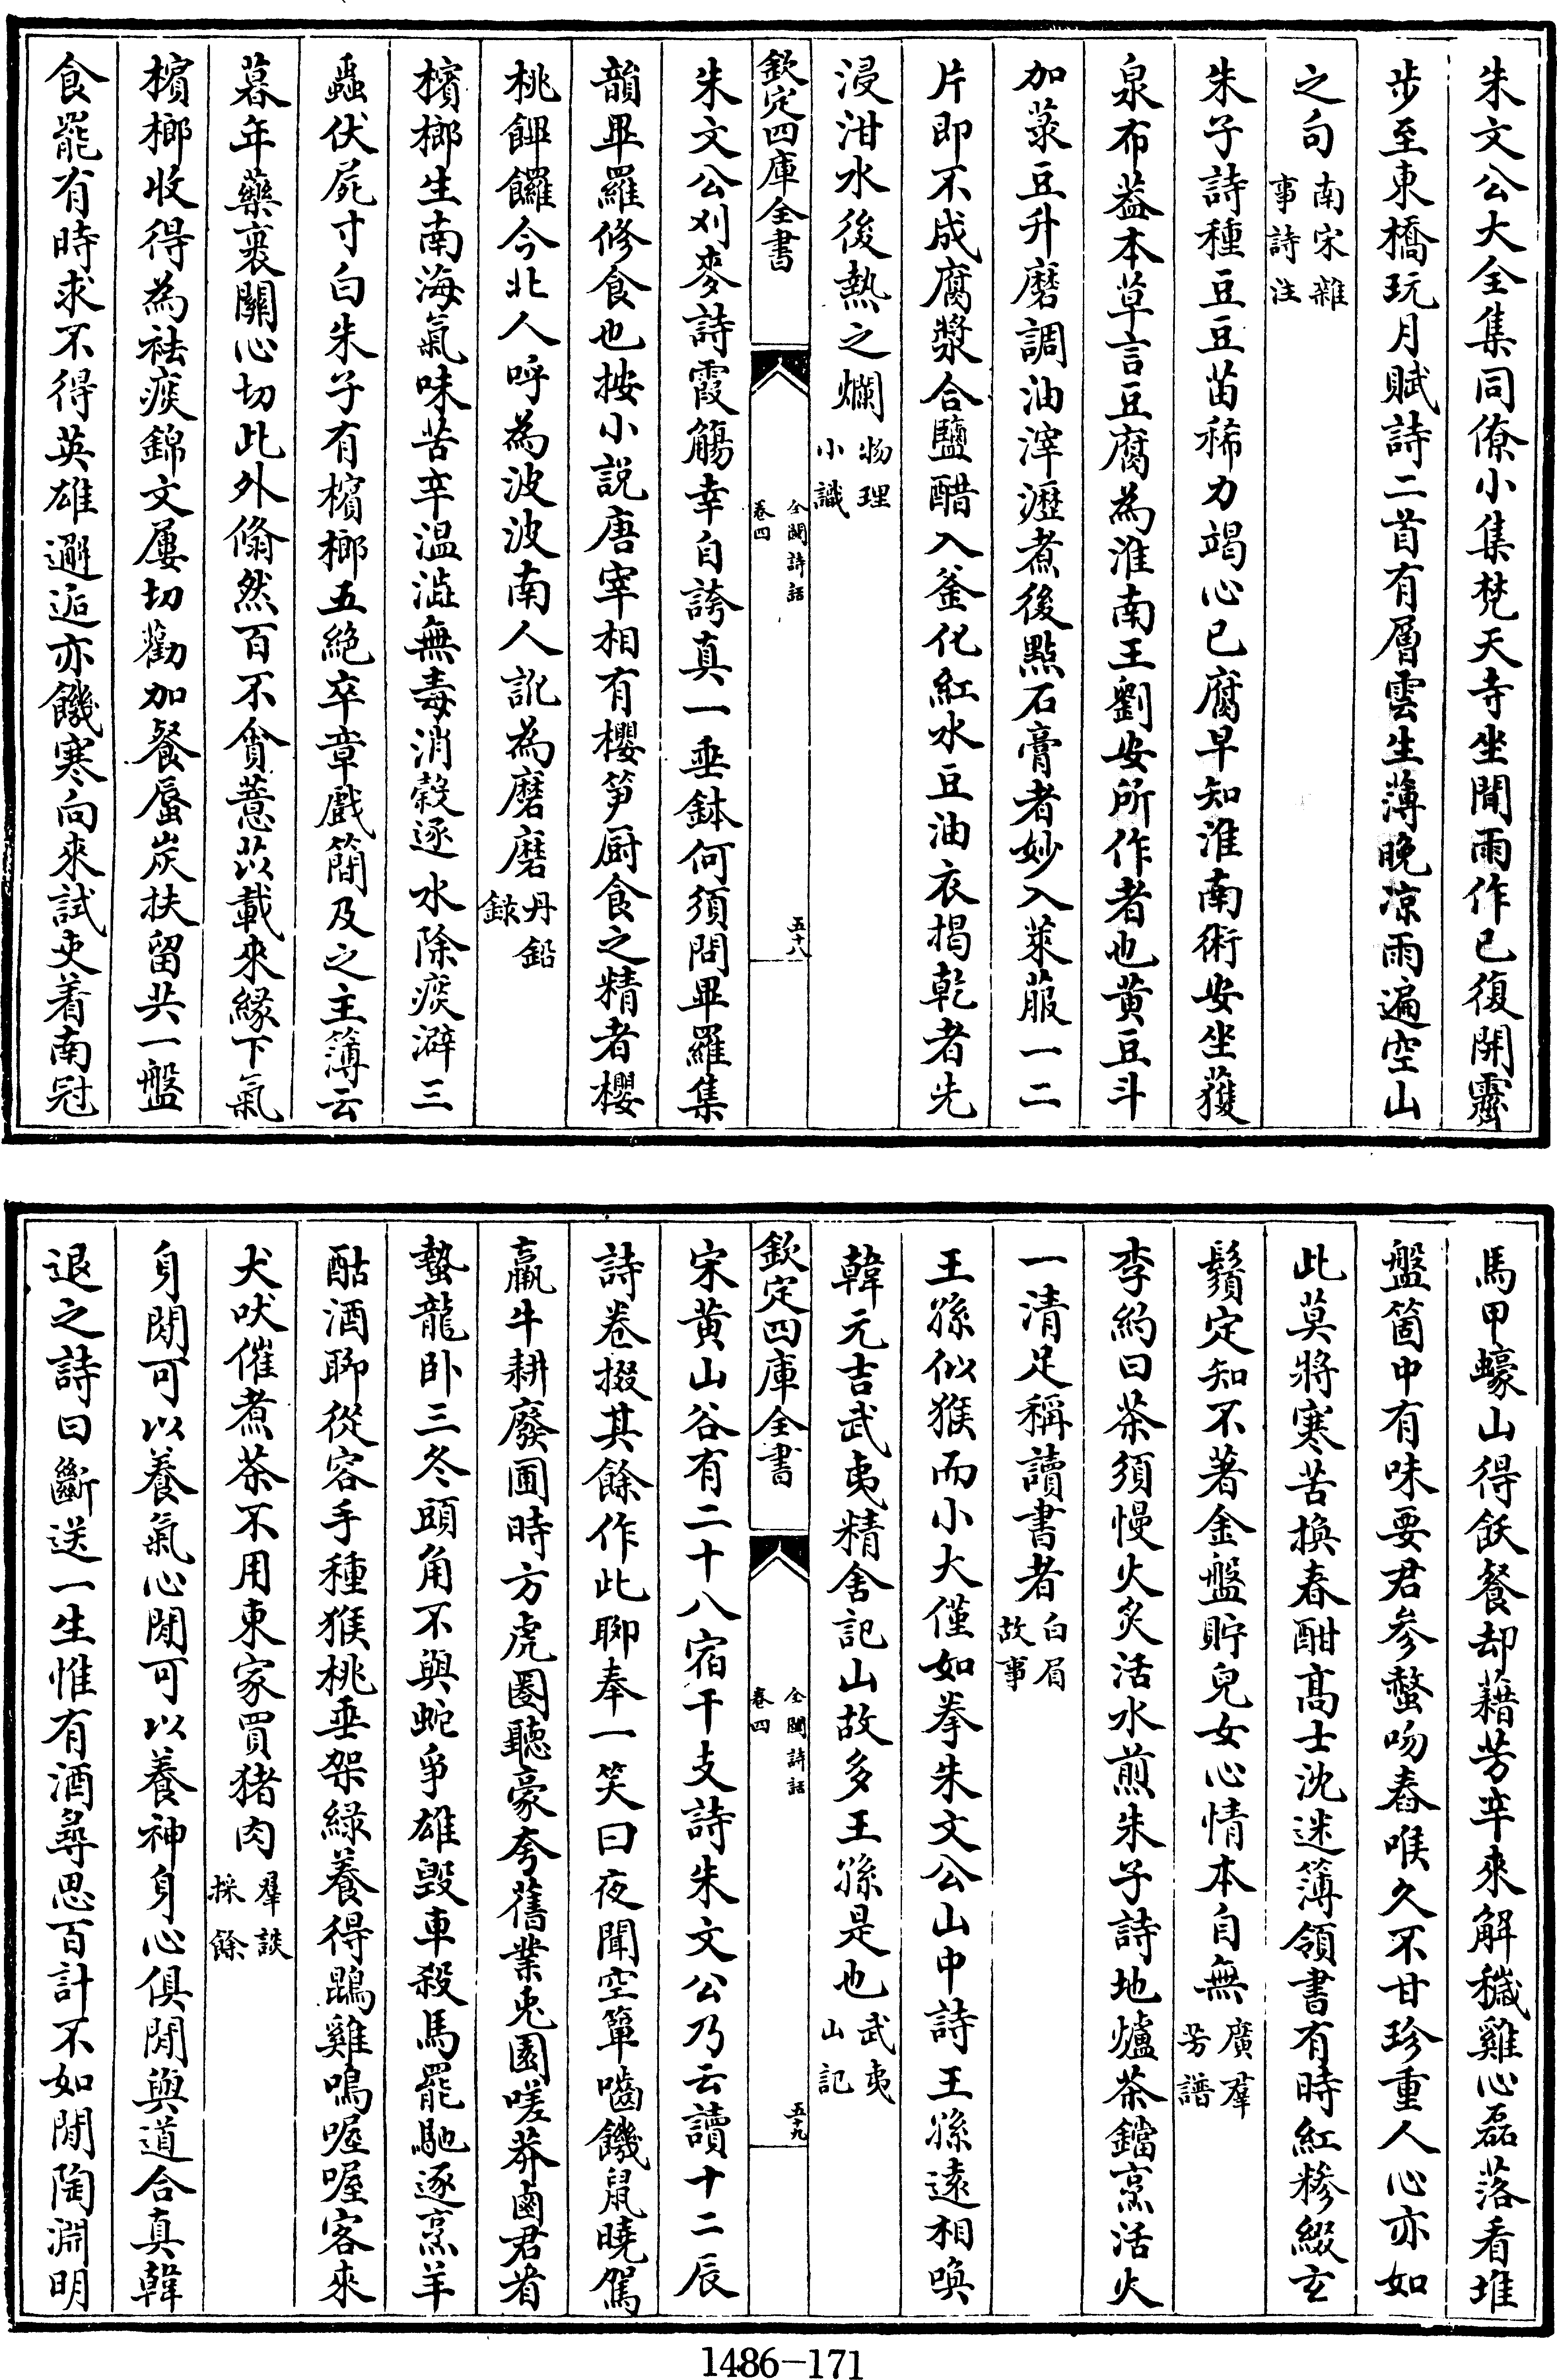 朱文公大全集同僚小集梵天寺坐間雨作已復開霽
步至東橋玩月賦詩二首有層雲生薄晚涼雨遍空山
之句南宋雜事詩注
朱子詩種豆豆苗稀力竭心已腐早知淮南術安坐獲
泉布葢本草言豆腐為淮南王劉安所作者也黄豆斗
加菉豆升磨調油滓瀝煮後點石膏者妙入萊菔一二
片即不成腐漿合鹽醋入釜化紅水豆油衣揭乾者先
浸泔水後熱之爛物理小識
欽定四庫全書
全閩詩話
卷四
五十八
朱文公刈麥詩霞觴幸自誇真一垂鉢何須問畢羅集
韻畢羅修食也按小説唐宰相有櫻笋厨食之精者櫻
桃饆饠今北人呼為波波南人訛為磨磨丹鉛録
檳榔生南海氣味苦辛温澁無毒消穀逐水除痰澼三
蟲伏屍寸白朱子有檳榔五絶卒章戲簡及之主簿云
暮年藥裹關心切此外翛然百不貪薏苡載來緣下氣
檳榔收得為祛痰錦文屢切勸加餐蜃炭扶留共一盤
食罷有時求不得英雄邂逅亦饑寒向來試吏着南冠
馬甲蠔山得飫餐却藉芳辛來解穢雞心磊落看堆
盤箇中有味要君參螫吻春喉久不甘珍重人心亦如
此莫將寒苦換春酣高士沈迷簿領書有時紅糝綴玄
鬚定知不著金盤貯兒女心情本自無廣羣芳譜
李約曰茶須慢火炙活水煎朱子詩地爐茶鐺烹活火
一清足稱讀書者白眉故事
王孫似猴而小大僅如拳朱文公山中詩王孫遠相喚
韓元吉武夷精舍記山故多王孫是也武夷山記
欽定四庫全書
全閩詩話
卷四
五十九
宋黄山谷有二十八宿干支詩朱文公乃云讀十二辰
詩卷掇其餘作此聊奉一笑曰夜聞空簞嚙饑鼠曉駕
羸牛耕廢圃時方虎圈聽豪夸舊業兎園嗟莽鹵君看
蟄龍卧三冬頭角不與蛇爭雄毀車殺馬罷馳逐烹羊
酤酒聊從容手種猴桃垂架緑養得鵾雞鳴喔喔客來
犬吠催煮茶不用東家買猪肉羣談採餘
身閒可以養氣心閒可以養神身心俱閒與道合真韓
退之詩曰斷送一生惟有酒尋思百計不如閒陶淵明
1486-171